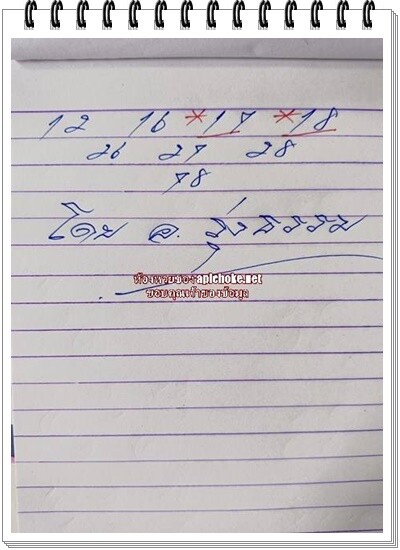 12 16 *17 *18
26 27 28
78
โดย อ. รุ่งธรรม
ห้องหวยของapichoke.net
ขอบคุณเจ้าของข้อมูล